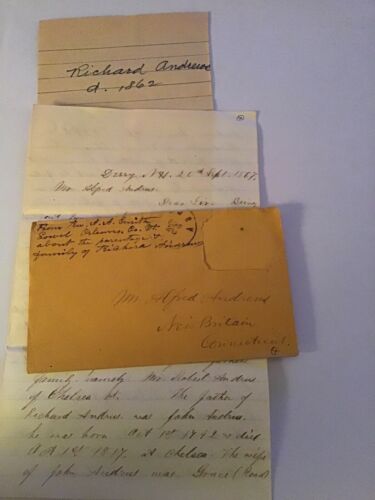 Richard Andrews
d. 1862
Derry N.H. 20th Sept. 1867.
Mr. Alfred Andrus.
Dear Sir. Being
From Rev. A. A. Smith
Lowel Orleans Co. Vt.
about the parentage &
family of Richard Andrews
Mr. Alfred Andrews
New Britain
Connecticut.
family namely Mr. Andrus
of Chelsea Vt. The father of
Richard Andrus was John Andrus.
he was born Oct 1st 1742 & died
1st 1817 at Chelsea. The wife
of John Andrus was